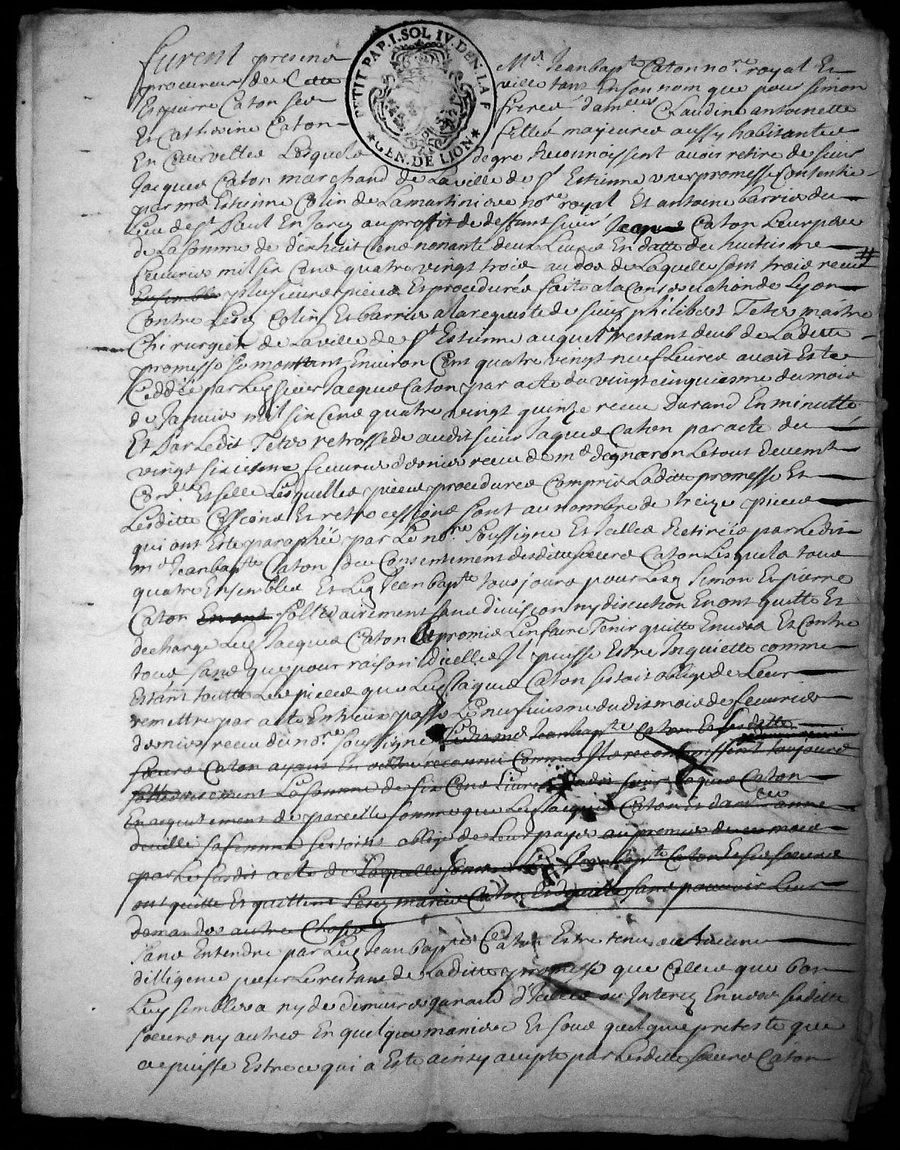 PETIT PAP. I. SOL IV. DEN. LA F
GEN. DE LION
furent presens Me Jeanbapte Caton nore royal Et
procureur de Cette ville tant En son nom que pour simon
Et pierre Caton ses freres dam.lles Claudine antoinette
Et Catherine Caton filles majeures aussy habitantes
En Cour lesquels de gre Reconnoissent avoir retiré de sieur
Jacques Caton marchand de La ville de St Estienne une promesse Consentie
par me Estienne Colin de Lamartiniere nore royal Et antoine barrier du
Lieu de St paul En Jarez au proffit de deffunt sieur Caton Leur pere
de La somme de dix huit Cens nonante deux Livres En datte du huitisme
fevrier mil six Cens quatre vingt trois au dos de Laquelle sont trois receus
Ensemble plusieurs pieces Et procedures faite a la Conservation de Lyon
Contre Lesd Colin Et barrier a la requeste de sieur philibert Teter maistre
Chirurgien de La ville de St Estienne auquel restant deub de Laditte
promesse se montant Environ Cent quatre vingt neuf Livres avoit Esté
Ceddée par Led sieur Jacques Caton par acte du vingt cinquiesme du mois
de Janvier mil six Cens quatre vingt quinze receu Durand En minutte
Et Par Ledit Teter retrossede audit sieur Jaques Caton par acte du
vingt sixiesme feuvrier dernier receu de me degueron Le tout deuemt
Corlé Et sellé Lesquelles pieces procedures Compris Laditte promesse Et
Lesditte Cessions Et retrocessions sont au nombre de treize pieces
qui ont Esté paraphée par Le nore soussigné Et Icelles Retirées par Ledit
me Jeanbapte Caton du Consentement desdittes soeurs Caton Lesquels tous
quatre Ensembles Et Led Jeanbapte tousjours pour Lesd Simon Et pierre
Caton En ont sollidairement sans division ny discution En ont quitté Et
decharge Led Jacques Caton Et promis L'en faire Tenir quitte Envers Et Contre
tous sans que pour raison d'icelles Il puisse Estre Inquietté comme
Estant toutte Les pieces que Led Jaques Caton s'estoit obligé de Leur
remettre par acte Entr'eux passé Le neufuiesme dudit mois de feuvrier
dernier receu du nore soussigné Jeanbapte Caton Et Lesditte
soeurs Caton ayant En outre receu Comme Ils reconnoissent tousjours
sollidairement La somme de six Cens Livres dudit sieur Jaques Caton
En acquitement de pareille somme que Led Jacques Caton Et dam.lle anne
sa femme s'estoit obligé de Leur payer au premier de ce mois
par Le susdit acte de Laquelle somme Led Jeanbapte Caton Et ses soeurs
ont quitté Et quittent Lesd mariés Caton Et sans pouvoir Leur
demander autre Chose
sans Entendre par Led Jeanbapte Caton Estre tenu aucune
dilligence pour Le restant de Laditte promesse que Celles que bon
Luy semblera ny de dimeurer garand d'Icelles ou Interez Envers sesditte
soeurs ny autres En quelque maniere Et sous quelque pretexte que
ce puisse Estre ce qui a Esté ainsy accepté par Lesditte soeurs Caton